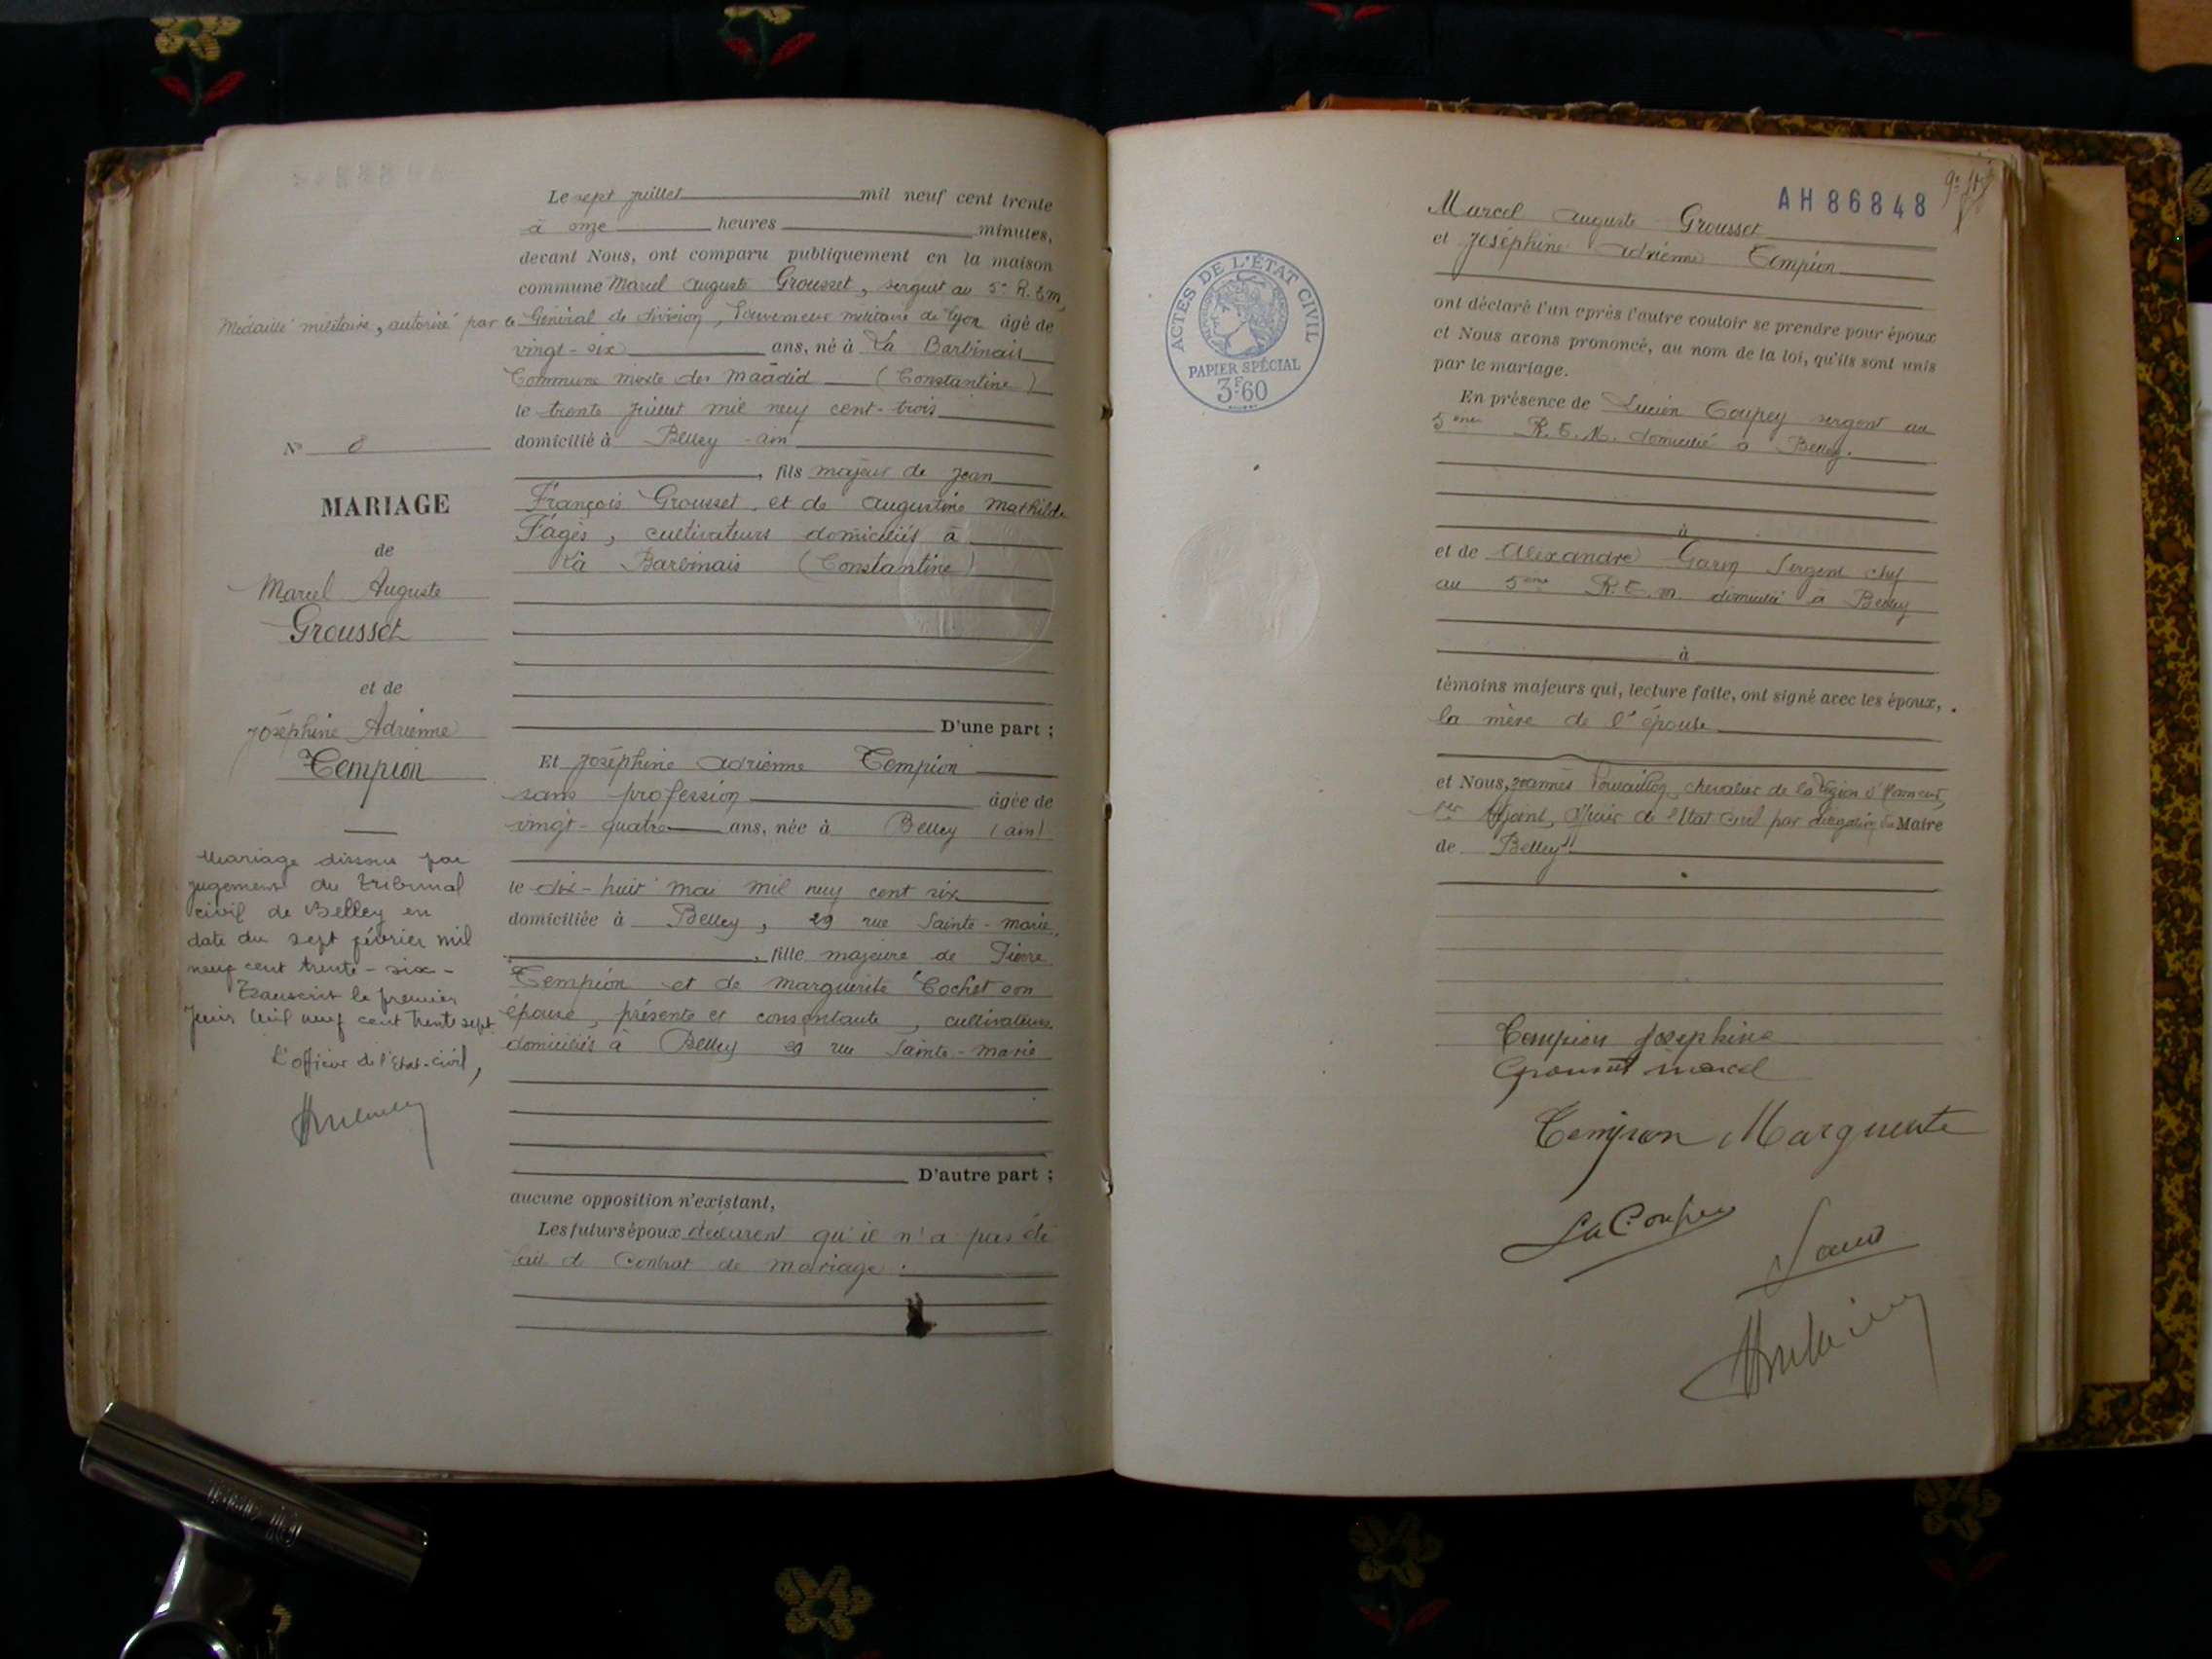 Le sept juillet mil neuf cent trente
à onze heures minutes,
devant Nous, ont comparu publiquement en la maison
commune Marcel Auguste Grousset, sergent au 5e R.t.m,
Médaillé militaire, autorisé par le Général de division, Gouverneur militaire de Lyon âgé de
vingt-six ans, né à La Barbinais
Commune mixte des Maâdid (Constantine)
le trente juillet mil neuf cent-trois
domicilié à Belley - ain
, fils majeur de Jean
François Grousset et de Augustine Mathilde
Fagès, cultivateurs domiciliés à
La Barbinais (Constantine)
D'une part ;
Et Joséphine Adrienne Tempion
sans profession âgée de
vingt-quatre ans, née à Belley (ain)
le dix-huit mai mil neuf cent six
domiciliée à Belley, 29 rue Sainte-marie.
, fille majeure de Pierre
Tempion et de Marguerite Cochet son
épouse, présente et consentante, cultivateurs
domiciliés à Belley 29 rue Sainte-marie
D'autre part ;
aucune opposition n'existant,
Les futurs époux déclarent qu'il n'a pas été
fait de Contrat de mariage.
N° 8
MARIAGE
de
Marcel Auguste
Grousset
et de
Joséphine Adrienne
Tempion
Mariage dissous par
jugement du tribunal
civil de Belley en
date du sept février mil
neuf cent trente-six-
Transcrit le premier
Juin mil neuf cent trente sept
L'officier de l'Etat-civil,
AH86848
ACTES DE L'ÉTAT CIVIL
PAPIER SPÉCIAL
3F.60
Marcel Auguste Grousset
et Joséphine Adrienne Tempion
ont déclaré l'un après l'autre vouloir se prendre pour époux
et Nous avons prononcé, au nom de la loi, qu'ils sont unis
par le mariage.
En présence de Lucien Coupey sergent au
5eme R.T.M. domicilié à Belley.
à
et de Alexandre Garin Sergent chef
au 5eme R.T.m. domicilié à Belley
à
témoins majeurs qui, lecture faite, ont signé avec les époux,
la mère de l'épouse
et Nous, Joannès chevalier de la légion d'honneur,
1er Adjoint, Officier de l'Etat Civil par délégation du Maire
de Belley
Tempion Josephine
Grousset marcel
Tempion Marguerite